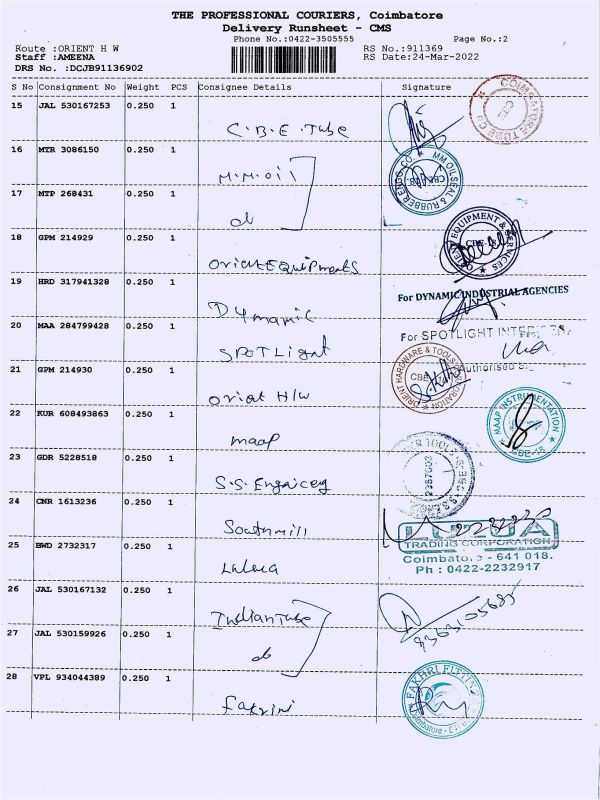 THE PROFESSIONAL COURIERS, Coimbatore
Delivery Runsheet - CMS
Phone No.:0422-3505555 Page No.:2
Route :ORIENT H W RS No.:911369
Staff :AMEENA RS Date:24-Mar-2022
DRS No. :DCJB91136902
S No Consignment No Weight PCS Consignee Details Signature
15 JAL 530167253 0.250 1
C.B.E.Tube
16 MTR 3086150 0.250 1
M.M.oil
MM OILSEAL & RUBBER ENGG. CO.
17 MTP 268431 0.250 1
do
18 GPM 214929 0.250 1
ORIENT EQUIPMENT & SERVICES
Orient Equipments
19 HRD 317941328 0.250 1
For DYNAMIC INDUSTRIAL AGENCIES
Dymanic
20 MAA 284799428 0.250 1
For SPOTLIGHT
SPOTLight
21 GPM 214930 0.250 1
Authorised
ORIENT HARDWARE & TOOLS CORPORATION
Orient H/W
22 KUR 608493863 0.250 1
MAAP INSTRUMENTATION
CBE-18
maap
23 GDR 5228518 0.250 1
S.S.
24 CNR 1613236 0.250 1
Southmill
2232230
TRADING CORPORATION
Coimbatore - 641 018.
Ph : 0422-2232917
25 BWD 2732317 0.250 1
26 JAL 530167132 0.250 1
Indian Tube
9363105685
27 JAL 530159926 0.250 1
do
28 VPL 934044389 0.250 1
FAKHRI FITTING
Fakrini